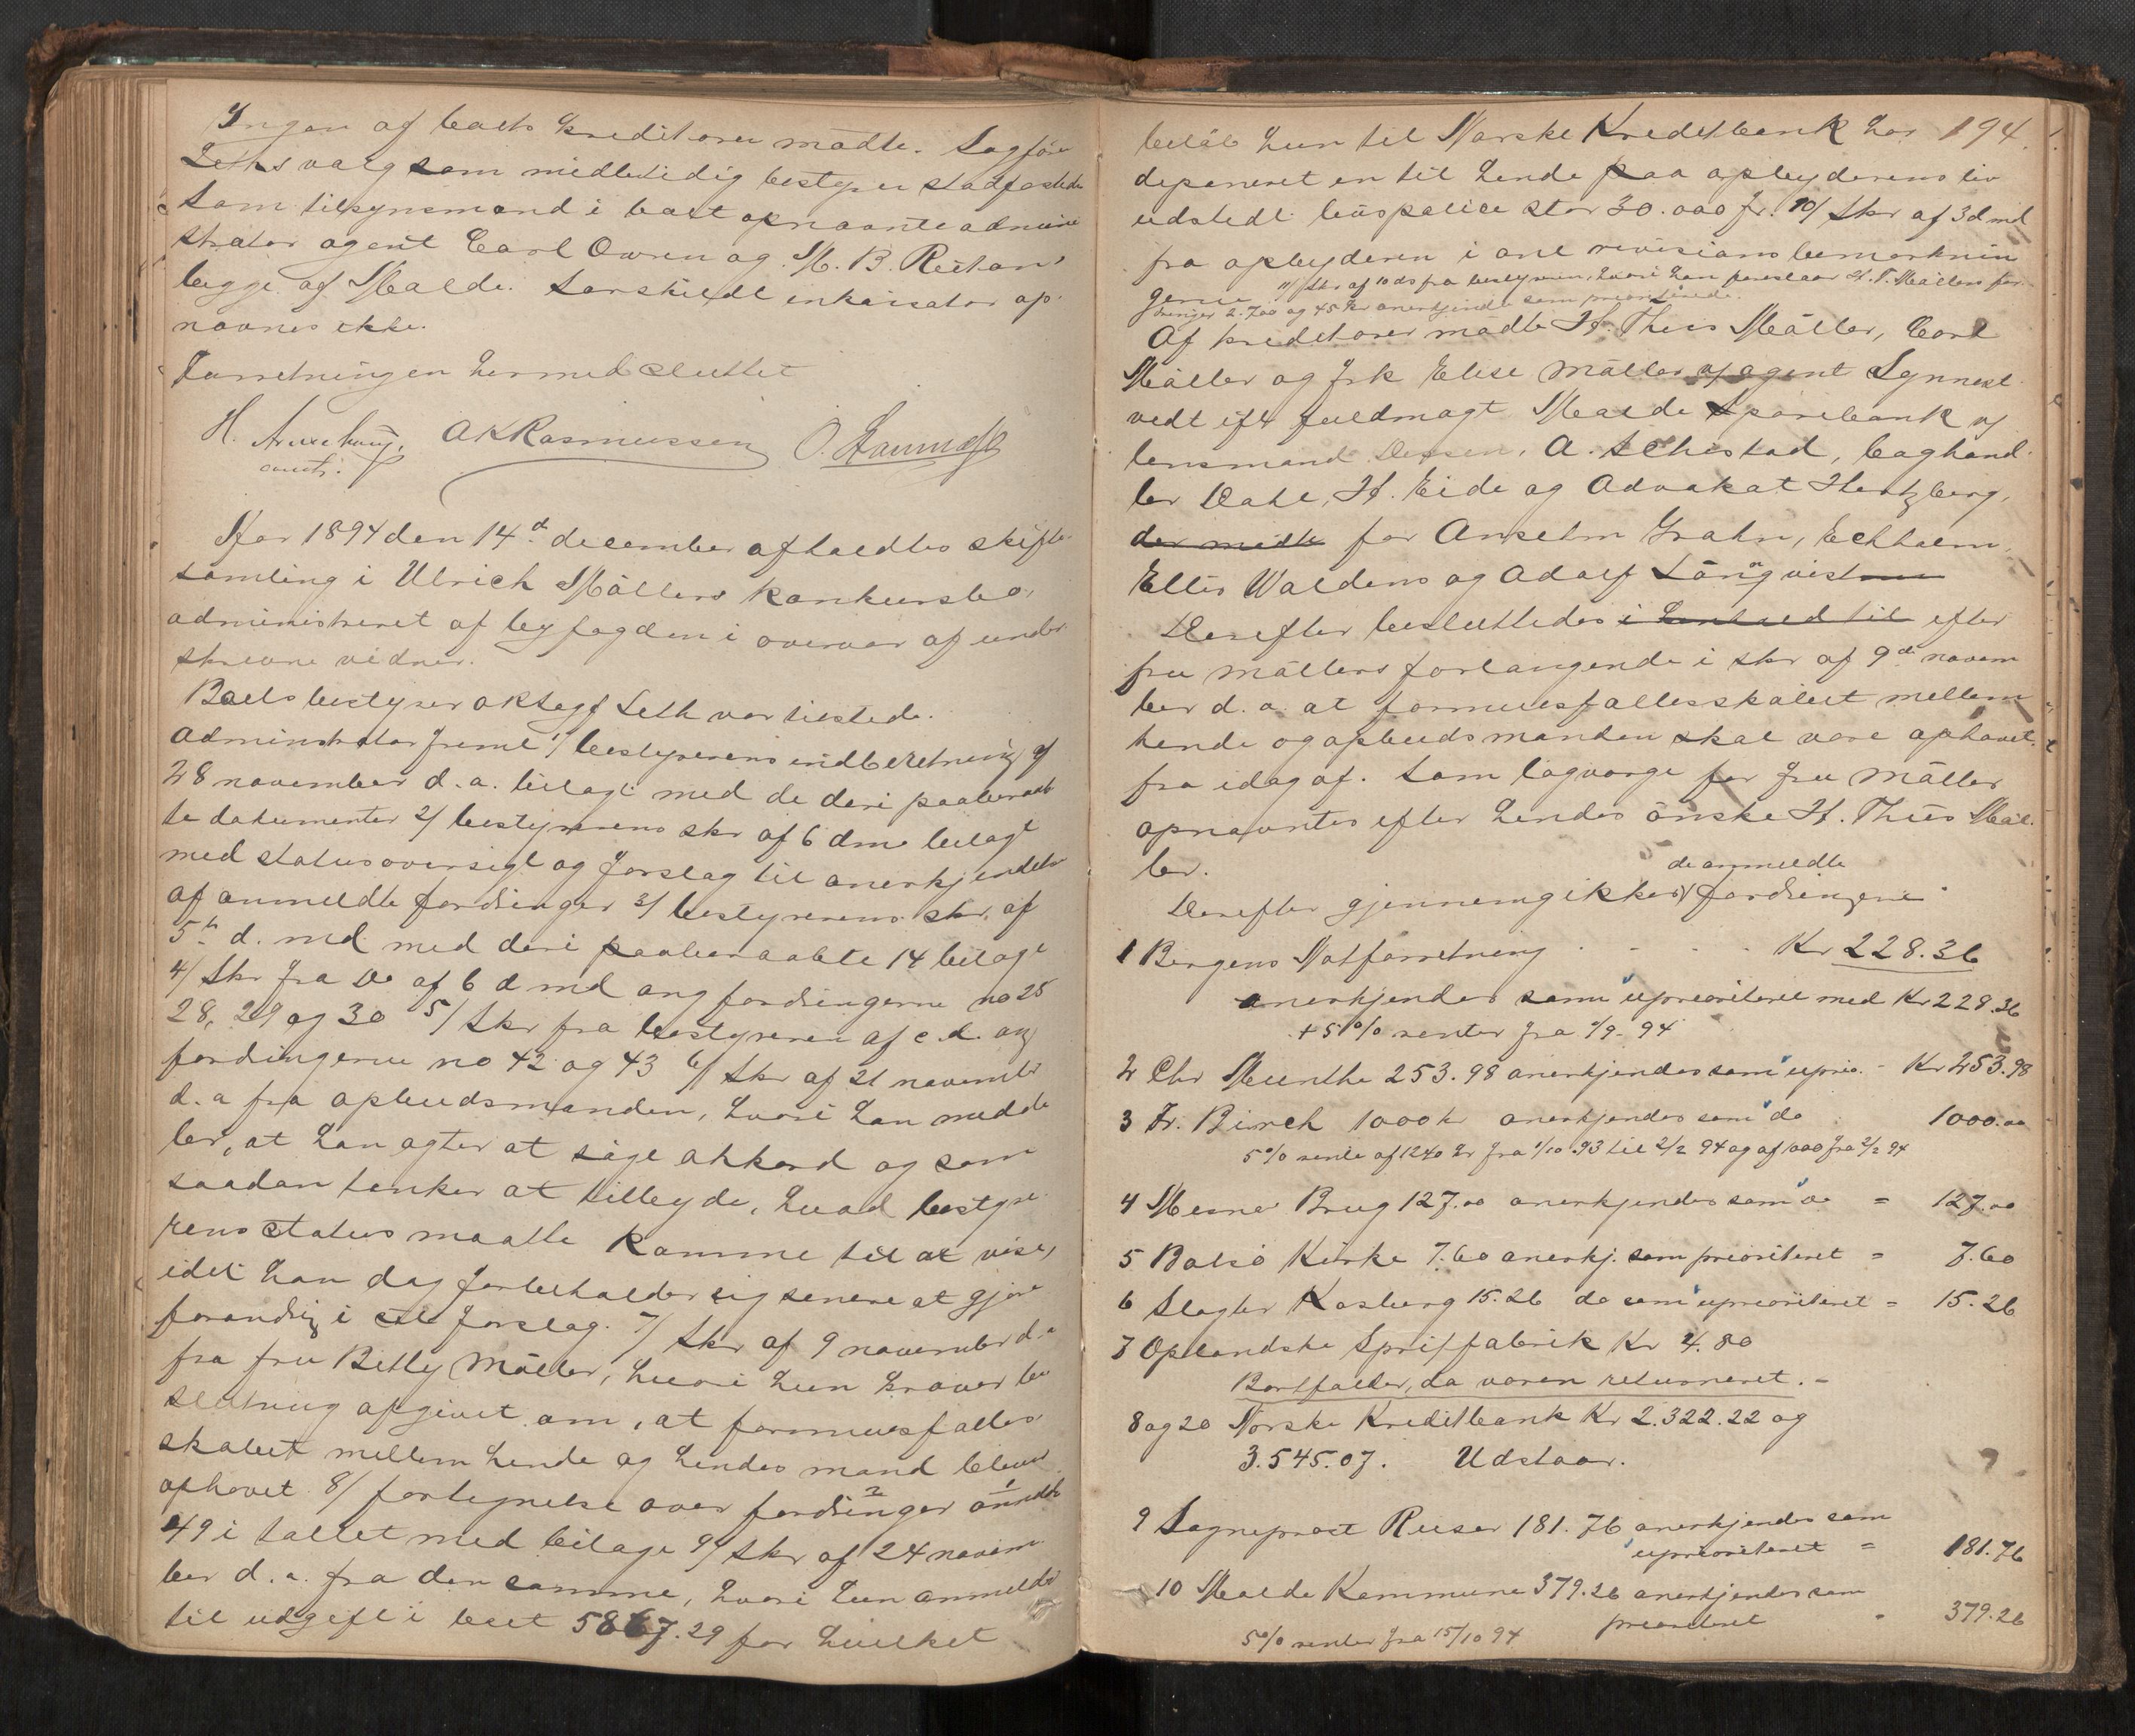 Ingen af boets kreditorer mödte. Sagförer
Leths valg som midlertidig bestyrer stadfæstedes
Som tilsynsmænd i boet opnævnte admini
strator agent Carl Owren og M. B.
begge af Molde. Særskildt inkassator op-
nævnes ikke.
Forretningen hermed sluttet
H. AKRasmussen O.
const.
Aar 1894 den 14d december afholdtes skifte-
samling i Ulrich Möllers konkursbo,
administreret af byfogden i overvær af under
skrevne vidner.
Boets bestyrer oRsagf Leth var tilstede.
Administrator freml 1/ bestyrerens indberetning af
28 november d. a. bilagt med de deri paaberaab
te dokumenter 2/ bestyrerens skr af 6 dms bilagt
med statusoversigt og forslag til anerkjendelse
af anmeldte fordringer 3/ bestyrerens skr. af
5te d. md med deri paaberaabte 14 bilage
4/ Skr fra Do af 6 d md ang fordringerne no 25
28, 29 og 30 5/ Skr fra bestyreren af s. d. ang
fordringerne no 42 og 43 6/ Skr af 21 novembr
d. a fra opbudsmanden, hvori han medde
ler, at han agter at söge akkord og som
saadan tænker at tilbyde, hvad besty-
rerens status maatte komme til at vise,
idet han dog forbeholder sig senere at gjöre
forandring i sit forslag. 7/ Skr af 9 november d. a
fra fru Betty Möller, hvori hun kræver be
slutning afgivet om, at formuesfælles-
skabet mellem hende og hendes mand bliver
ophævet 8/ fortegnelse over fordringer anmeldte
49 i tallet med bilage 9/ Skr af 24 novem
ber d. a. fra den samme, hvori hun anmelder
til udgift i boet 5867.29 for hvilket
belöb hun til Norske Kreditbank har 194.
deponeret en til hende paa opbyderens liv
udstedt livspolice stor 30.000 fr. 10/ Skr af 3 d md
fra opbyderen i anl revisionsbemærknin
gerne 11/ Skr af 10 ds fra bestyreren, hvori han foreslaar H. T. Möllers for
dringer 2.700 og 45 Kr anerkjendt som prioriterede.
Af kreditorer mödte H. Thiis Möller, Carl
Möller og frk Elise Möller af agent Synnest
vedt ifl fuldmagt Molde Sparebank af
lensmand Devsen, A. Schistad, boghand
ler Dahl, H. Eide og Advokat Hertzberg,
der mödte for Anselm Grahn, Eckholm,
Elliis Waldens og Adolf Lönqvist
Derefter besluttedes i Henhold til efter
fru Möllers forlangende i skr af 9de novem
ber d. a. at formuesfællesskabet mellem
hende og opbudsmanden skal være ophævet
fra idag af. Som lagværge for fru Möller
opnævntes efter hendes önske H. Thiis Möl-
ler.
Derefter gjennemgikkes de anmeldte fordringer:
1 Bergens Notforretning - - - Kr 228.36
anerkjendes som uprioriteret med Kr 228.36
+ 5% renter fra 1/9- 94
2 Chr Munthe 253.98 anerkjendes som uprio. - Kr 253.98
3 Fr. Birch 1000 kr anerkjendes som do 1000.00
5% rente af 1240 kr fra 1/10 93 til 2/2 94 og af 1000 fra 2/2 94
4 Mesna Brug 127.00 anerkjendes som do = 127.00
5 Bolsö Kirke 7.60 anerkj. som prioriteret = 7.60
6 Slagter Kosberg 15.26 do som uprioriteret = 15.26
7 Oplandske Spritfabrik Kr 4.80
Bortfalder, da varen returneret. -
8 og 20 Norske Kreditbank Kr 2.322.22 og
3.545.07. Udstaar.
9 Sogneprost Riiser 181.76 anerkjendes som
uprioriteret = 181.76
10 Molde Kommune 379.26 anerkjendes som
prioriteret - 379.26
5% renter fra 15/10 94